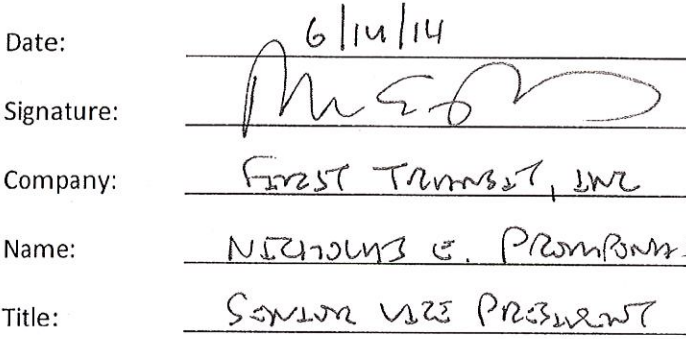 Date: 6/14/14
Signature:
Company: FIRST TRANSIT, INC
Name: NICHOLAS E. PROMPONAS
Title: SENIOR VICE PRESIDENT